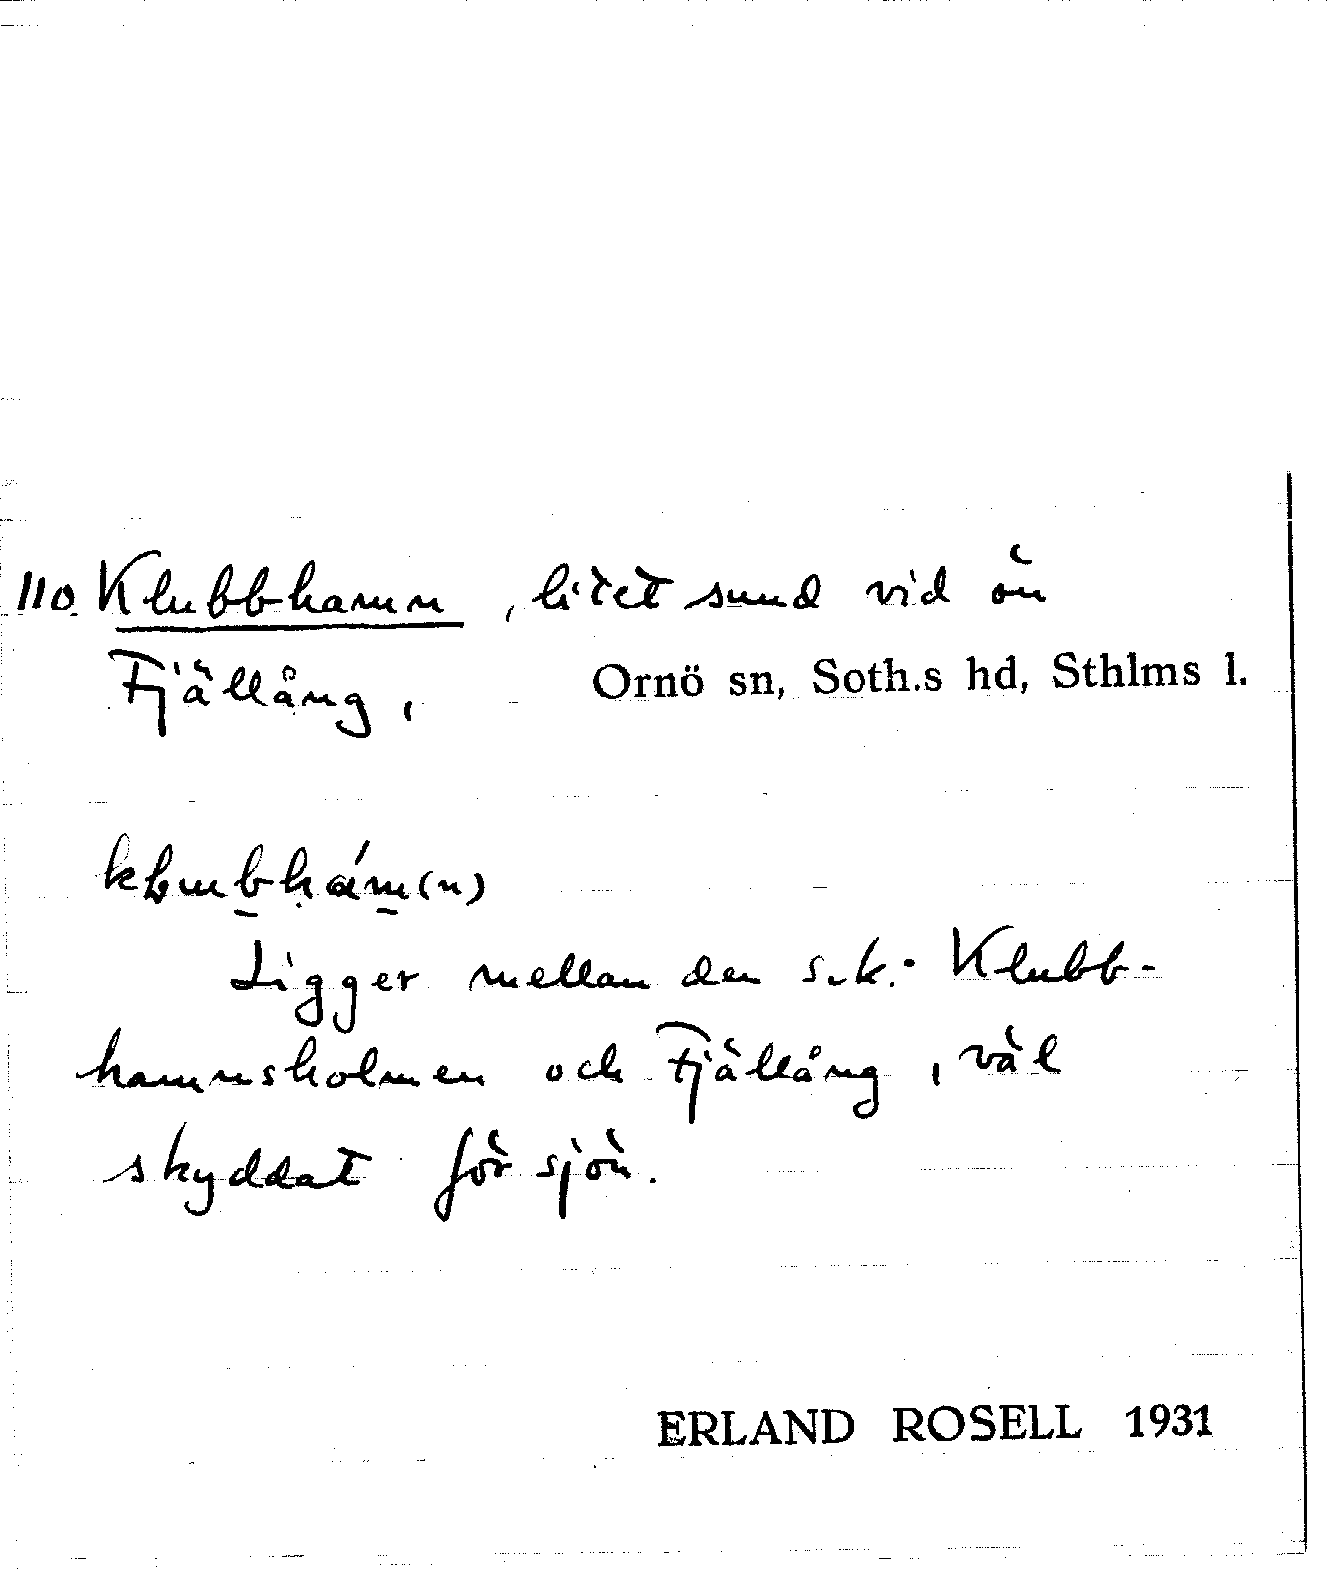 110. Klubbhamn, litet sund vid ön
Fjällång, Ornö sn, Soth.s hd, Sthlms l.
Ligger mellan den s.k. Klubb-
hamnsholmen och Fjällång, väl
skyddat för sjön.
ERLAND ROSELL 1931